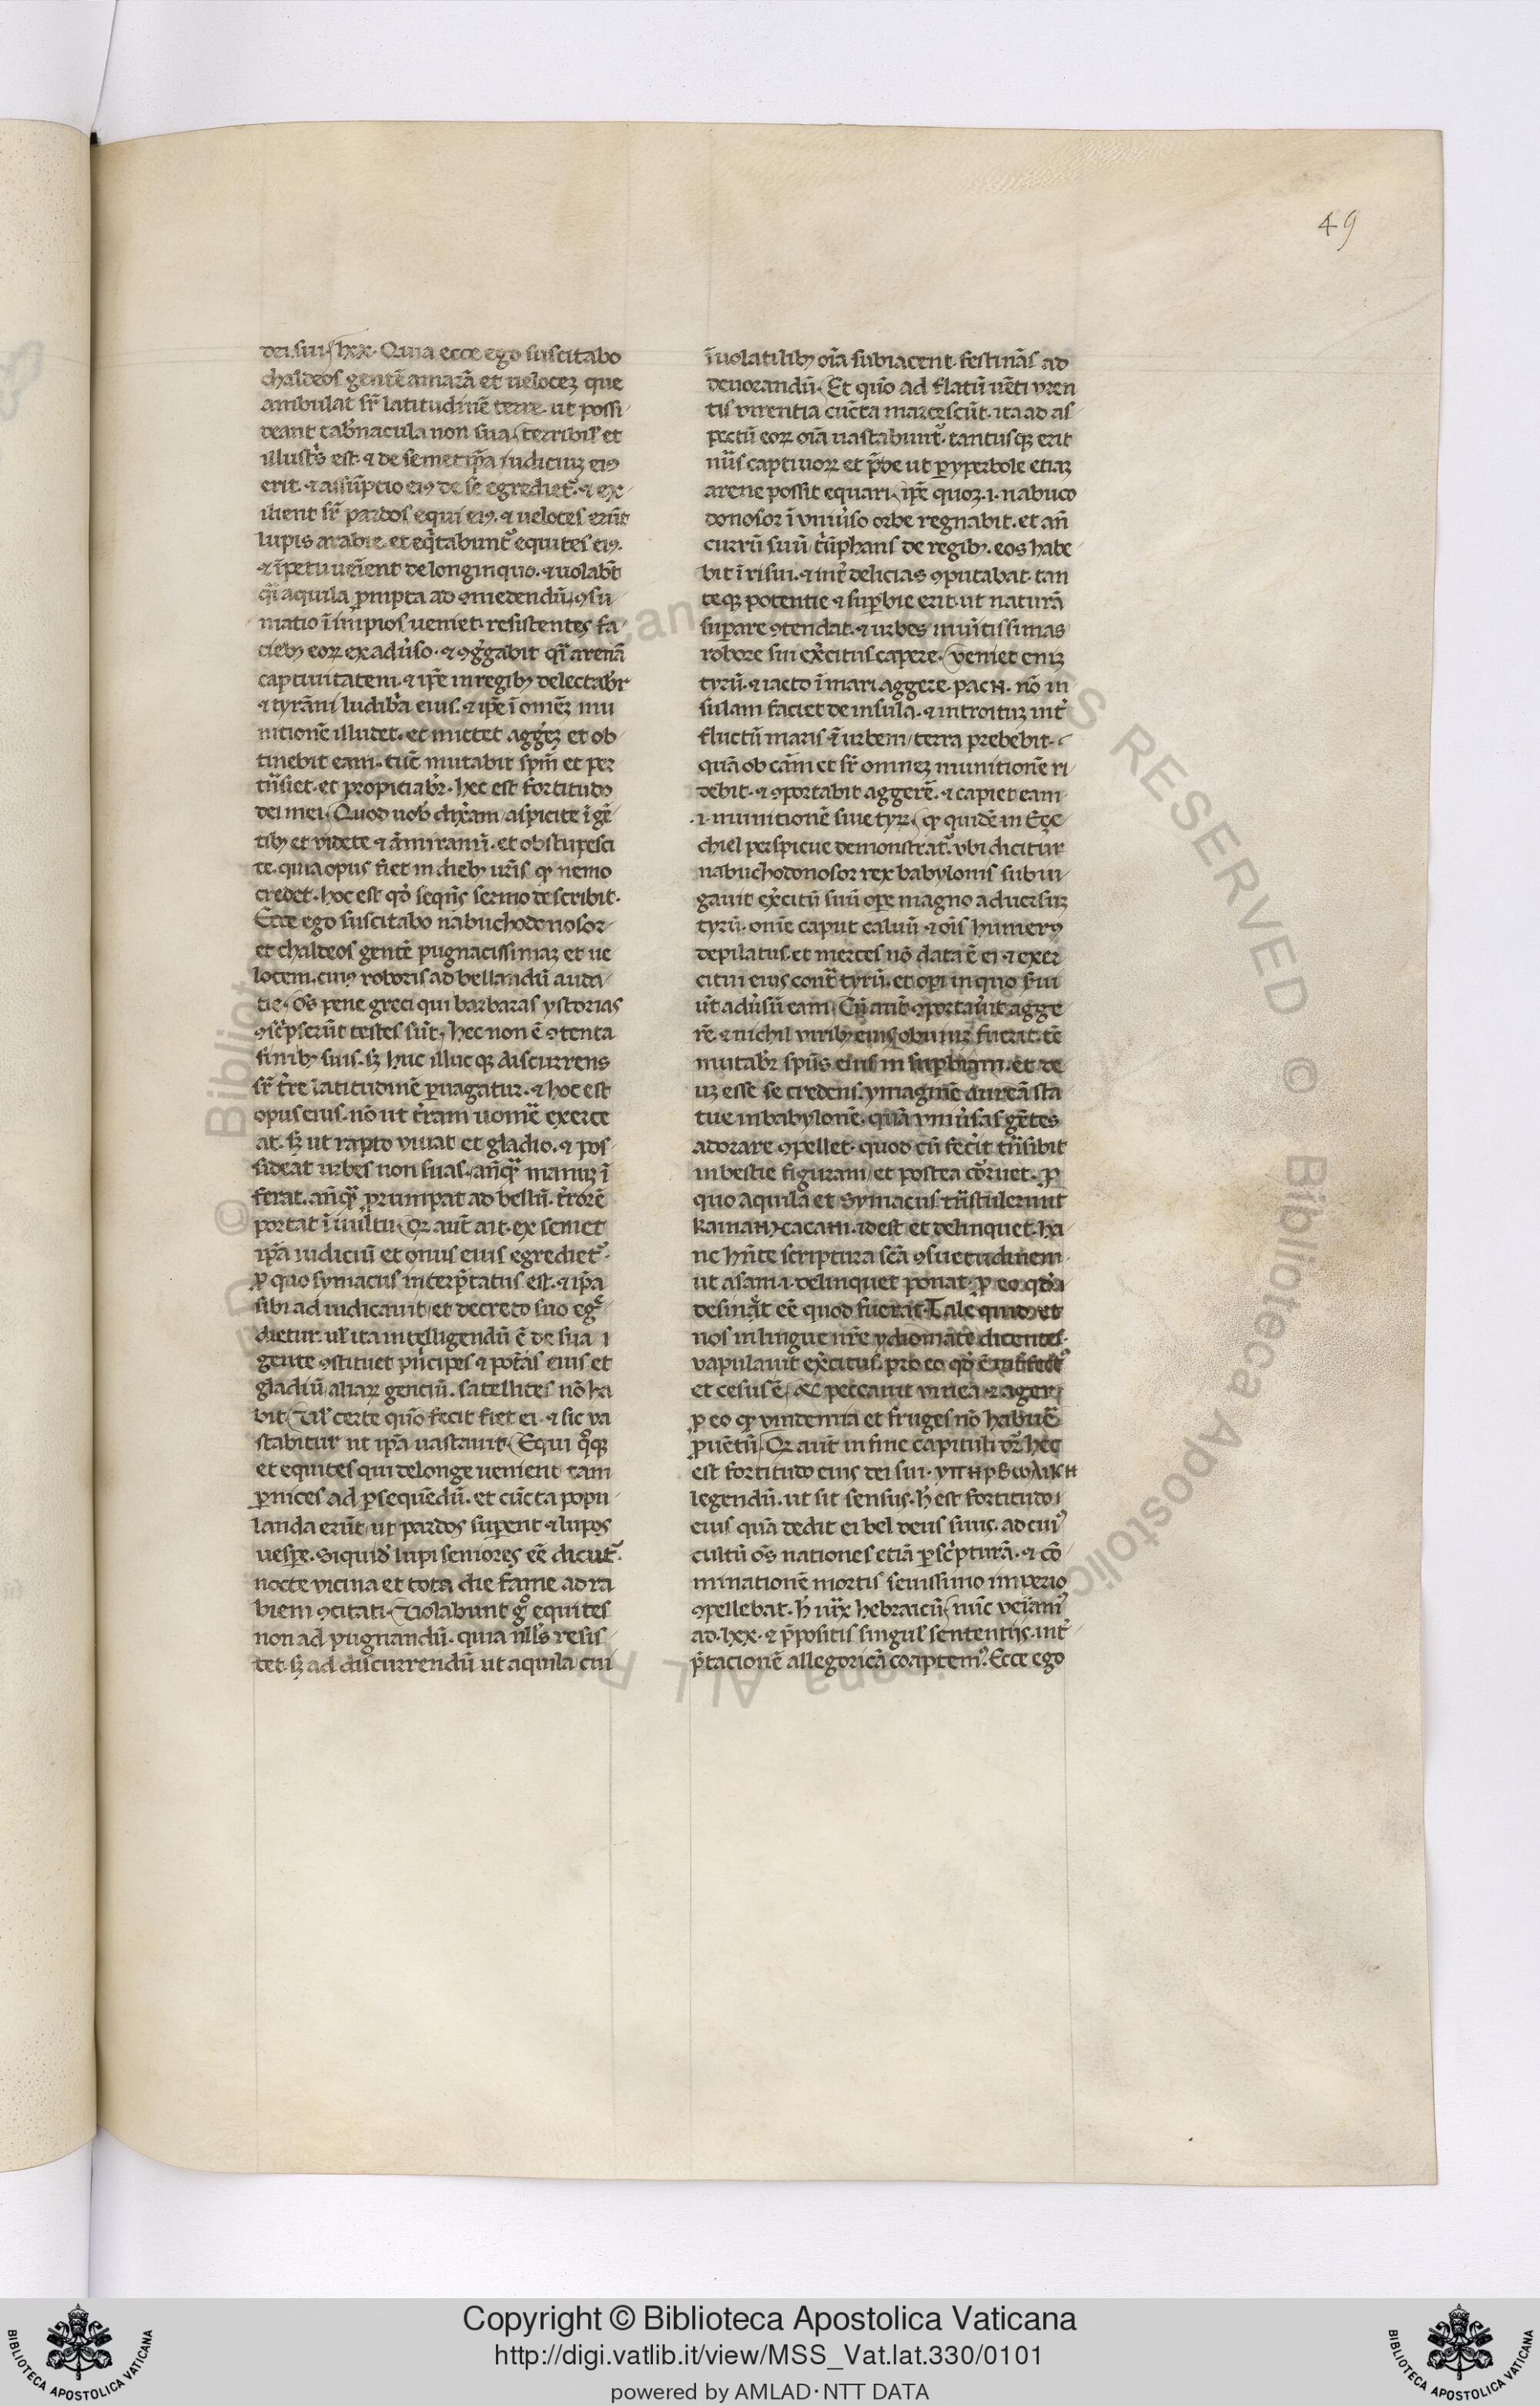 49
dei sui. lxx. Quia ecce ego suscitabo
chaldeos gentē amarā et uelocez que
ambulat sr̄ latitudinē terre. ut possi
deant tab̄nacula non sua. terribil̓ et
illustr̓s est. ⁊ de semetip̄a iudiciuz eiꝰ
erit. ⁊ assūptio eiꝰ de se egrediet᷑. ⁊ ex
ilient sr̄ pardos equi eiꝰ. ⁊ ueloces erūt
lupis arabie. et eq̓tabunt᷑ equites eiꝰ.
⁊ īpetu uēient de longinquo. ⁊ uolabūt
q̄i aquila ꝓmpta ad ꝯmedendū. ꝯsu
matio ī impios ueniet. resistentes fa
cieb; eoꝝ ex adūso. ⁊ ꝯg̓gabit q̄i arenā
captiuitatem. ⁊ ip̄e in regib; delectab̓r
⁊ tyrāni ludib̓a eius. ⁊ ip̄e ī omēz mu
nitionē illudet. et mittet agg̓ez et ob
tinebit eam. tūc mutabit sp̄m et per
trāsiet. et propiciab̓r. hec est fortitudo
dei mei. Quod uob̓ dix̓am aspicite ī gē
tib; et videte ⁊ ām̄iramī. et obstupesci
te. quia opus fiet in dieb; ur̄is ꝙ nemo
credet. hoc est qd̓ seqn̄s sermo describit.
Ecce ego suscitabo nabuchodonosor
et chaldeos gentē pugnacissimaz et ue
locem. cuiꝰ roboris ad bellandū auda
tie. oēs pene greci qui barbaras ystorias
ꝯsc̓pserūt testes sūt. hec non ē ꝯtenta
finib; suis. sꝫ huc illucqꝫ discurrens
sr̄ t̓re latitudinē ꝑuagatur. ⁊ hoc est
opus eius. nō ut t̓ram uome᷑ exerce
at. sꝫ ut rapto viuat et gladio. ⁊ pos
sideat urbes non suas. anq̄ manuz ī
ferat. anq̄ ꝓrumpat ad bellū. t̓rorē
portat ī uultu. Qꝫ aut̄ ait. ex semet
ip̄a iudiciū et onus eius egrediet᷑.
ꝓ quo symacus interp̄tatus est. ⁊ ip̄a
sibi ad iudicauit et decreto suo eg̓
dietur. ul̓ ita intelligendū ē de sua
gente ꝯstituet p̓ncipes ⁊ pot̄as eius et
gladiū aliaꝝ gentiū. satellites nō ha
bit. Ul̓ certe quō fecit fiet ei. ⁊ sic va
stabitur ut ip̄a uastauit. Equi q̊qꝫ
et equites qui de longe uenient tam
ꝑnices ad ꝑsequēdū. et cūcta popu
landa erūt ut pardos suꝑent ⁊ lupos
uesꝑe. Siquid̓ lupi seniores eē dicūt᷑.
nocte vicina et tota die fame ad ra
biem ꝯcitati. Uolabunt g̊ equites
non ad pugnandū. quia nll̓s resis
tet. sꝫ ad discurrendū ut aquila cui
ī uolatilib; oīa subiacent. festinās ad
deuorandū. Et quō ad flatū uēti vren
tis virentia cūcta marcescūt. ita ad as
pectū eoꝝ oīa uastabunt᷑. tantusqꝫ erit
nūs captiuoꝝ et p̄de ut ꝑ yperbole etiaz
arene possit equari. ip̄e quoz .i. nabuco
donosor ī vniūso orbe regnabit. et an̄
currū suū t̓ūphans de regib;. eos habe
bit ī risui. ⁊ int̓ delicias ꝯputabat. tan
teqꝫ potentie ⁊ suꝑbie erit. ut naturā
suꝑare ꝯtendat. ⁊ urbes munitissimas
robore sui ex̓citus capere. Veniet eniz
tyrū. ⁊ iacto ī mari aggere. pacn. nō in
sulam faciet de insula. ⁊ introituz int̓
fluctū maris ī urbem terra prebebit.
quā ob cām et sr̄ omnez munitionē ri
debit. ⁊ ꝯportabit aggerē. ⁊ capiet eam
.i. munitionē siue tyꝝ. ꝙ quidē in Eze
chiel perspicue demonstrat᷑. vbi dicitur
nabuchodonosor rex babylonis subiu
gauit ex̓citū suū oꝑe magno aduersuz
tyrū. omē caput caluū ⁊ oīs humerꝰ
depilatus. et merces nō data ē ei ⁊ exer
citui eius cont̄ tyrū. et oꝑi in quo s̓ui
ūt adūsū eam. Cū aut̄ ꝯportaūit agge
rē. ⁊ nichil virib; eius obuiuz fuerat. tē
mutab̓r sp̄us eius in suꝑbiam. et de
uz esse se credens. ymaginē aureā sta
tue in babylonē. quā vniūsas gētes
adorare ꝯpellet. quod cū fec̓it trāsibit
in bestie figuram et postea cor̄uet. ꝓ
quo Aquila et Symacus trāstulerunt
id est et delinquet. ha
nc hn̄te scriptura scā ꝯsuetudinem
ut asam .i. delinquet ponat. ꝓ eo qd̓
desinat eē quod fuerat. Tale quid et
nos in lingue nr̄e ydiomate dicentes.
vapulauit ex̓citus. pro eo qd̓ ē
et cesus ē. Ac peccauit vinea ⁊ ager
ꝓ eo ꝙ vindemia et fruges nō habue᷑
ꝓuētū. Qꝫ aut̄ in fine capituli dr̄. hec
est fortitudo eius dei sui.
legendū. ut sit sensus. h̓ est fortitudo
eius quā dedit ei bel deus suus. ad cuiꝰ
cultū oēs nationes etiā ꝑ sc̓pturā. ⁊ cō
minationē mortis seuissimo imperio
ꝯpellebat. h̓ iux̄ hebraicū. nūc veniamꝰ
ad .lxx. ⁊ p̄positis singul̓ sententijs. int̓
p̄tacionē allegoricā coaptemꝰ. Ecce ego
Copyright © Biblioteca Apostolica Vaticana
http://digi.vatlib.it/view/MSS_Vat.lat.330/0101
powered by AMLAD·NTT DATA
BIBLIOTECA APOSTOLICA VATICANA
BIBLIOTECA APOSTOLICA VATICANA